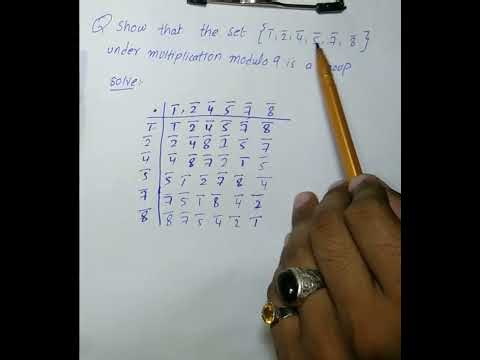 Q Show that the set { 1̅, 2̅, 4̅, 5̅, 7̅, 8̅ }
under multiplication modulo 9 is a
Solve:-
. 1̅, 2̅ 4̅ 5̅ 7̅ 8̅
1̅ 1̅ 2̅ 4̅ 5̅ 7̅ 8̅
2̅ 2̅ 4̅ 8̅ 1̅ 5̅ 7̅
4̅ 4̅ 8̅ 7̅ 2̅ 1̅ 5̅
5̅ 5̅ 1̅ 2̅ 7̅ 8̅ 4̅
7̅ 7̅ 5̅ 1̅ 8̅ 4̅ 2̅
8̅ 8̅ 7̅ 5̅ 4̅ 2̅ 1̅